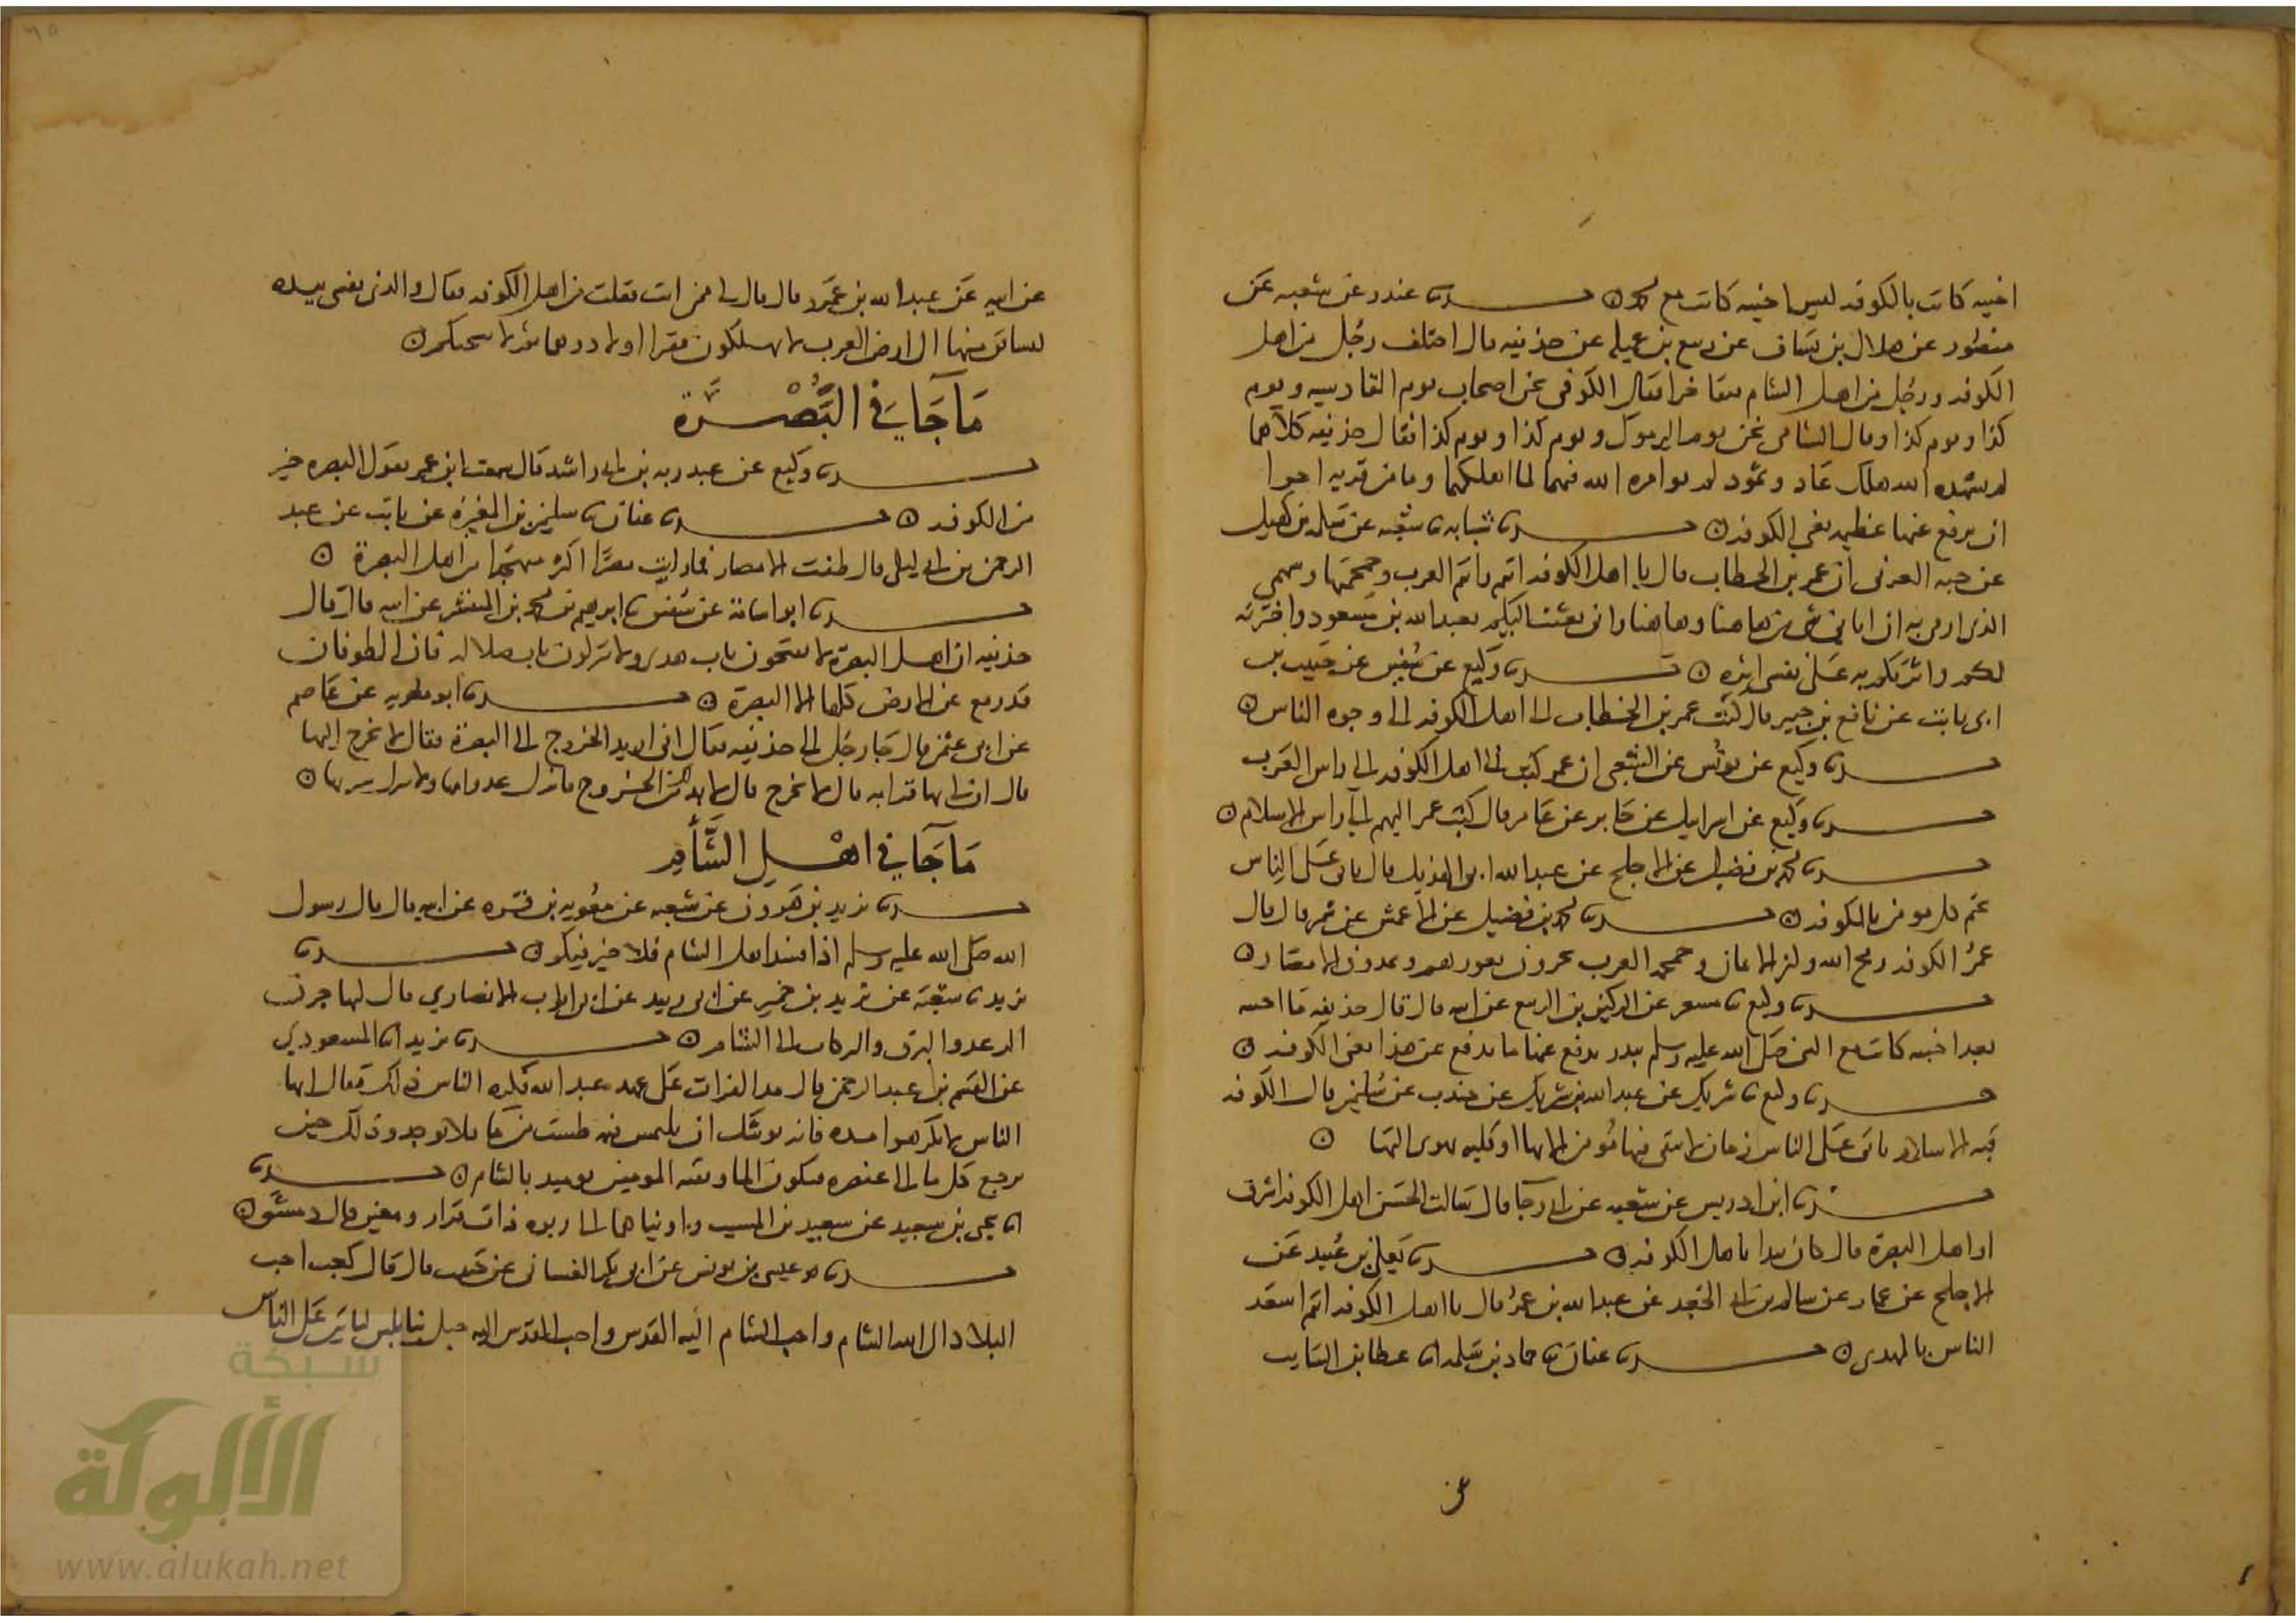 اخبيه كانت بالكوفه ليس اخبيه كانت مع محمد حدثنا غندر عن شعبه عن
منصور عن هلال بن يساف عن ربيع بن عميله عن حذيفه قال اختلف رجل من اهل
الكوفه ورجل من اهل الشام فتفاخرا فقال الكوفي نحن اصحاب يوم القادسيه ويوم
كذا ويوم كذا وقال الشامي نحن يوم اليرموك ويوم كذا ويوم كذا فقال حذيفه كلاهما
لم يشهده الله هلك عاد وثمود لم يوامره الله فيهما لما اهلكهما وما من قريه احرا
ان يرفع عنها عظيمه يعني الكوفه حدثنا شبابه ثنا شعبه عن سلمه بن كهيل
عن حبه العرني ان عمر بن الخطاب قال يا اهل الكوفه انتم راس العرب وجمجمتها وسهمي
الذي ارمي به ان اتاني شي من هاهنا وهاهنا واني بعثت اليكم بعبد الله بن مسعود واخترته
لكم واثرتكم به على نفسي اثره حدثنا وكيع عن سفين عن حبيب بن
ابي ثابت عن نافع بن جبير قال كتب عمر بن الخطاب الى اهل الكوفه الى وجوه الناس
حدثنا وكيع عن يونس عن الشعبي ان عمر كتب الى اهل الكوفه الى راس العرب
حدثنا وكيع عن اسرايل عن جابر عن عامر قال كتب عمر اليهم الى راس الاسلام
حدثنا محمد بن فضيل عن الاجلح عن عبد الله ابي الهذيل قال ياتي على الناس
كل مومن بالكوفه حدثنا محمد بن فضيل عن الاعمش عن شمر قال قال
عمر الكوفه رمح الله وكنز الايمان وجمجمه العرب يحرزون ثغورهم ويمدون الامصار
حدثنا وكيع ثنا مسعر عن الركين بن الربيع عن ابيه قال قال حذيفه ما اخبيه
بعد اخبيه كانت مع النبي صلى الله عليه وسلم ببدر يدفع عنها ما يدفع عن هذا يعني الكوفه
حدثنا وكيع ثنا شريك عن عبد الله بن شريك عن جندب عن سلمن قال الكوفه
قبه الاسلام ياتي على الناس زمان لا يبقى فيها مومن الا بها او قلبه يهوى اليها
حدثنا ابن ادريس عن شعبه عن ابي رجا قال سالت الحسن اهل الكوفه اشرف
او اهل البصرة قال كان يبدا باهل الكوفه حدثنا يعلى بن عبيد عن
الاجلح عن عمار عن سالم بن ابي الجعد عن عبد الله بن عمرو قال يا اهل الكوفه انتم اسعد
الناس بالمهدي حدثنا عفان ثنا حماد بن سلمه انا عطا بن السايب
عن ابيه عن عبد الله بن عمرو قال قال لي ممن انت فقلت من اهل الكوفه فقال والذي نفسي بيده
ليساقن منها الى ارض العرب لا يملكون قفيزا ولا درهما ثم لا ينجيكم
ما جا في البصرة
حدثنا وكيع عن عبد ربه بن ابي راشد قال سمعت ابن عمر يقول البصره خير
من الكوفه حدثنا عفان ثنا سليمن بن المغيرة عن ثابت عن عبد
الرحمن بن ابي ليلى قال طفت الامصار فما رايت مصرا اكثر متهجدا من اهل البصرة
حدثنا ابو اسامة عن سفين ثنا ابرهيم بن محمد بن المنتشر عن ابيه قال قال
حذيفه ان اهل البصرة لا يفتحون باب هدى ولا يتركون باب ضلاله فان الطوفان
قد رفع عن الارض كلها الا البصرة حدثنا ابو معويه عن عاصم
عن ابي عثمن قال جا رجل الى حذيفه فقال اني اريد الخروج الى البصرة فقال لا تخرج اليها
قال ان لي بها قرابه قال لا تخرج قال لا بد من الخروج قال فانزل عدواتها ولا تنزل سرتها
ما جا في اهل الشام
حدثنا يزيد بن هرون عن شعبه عن معويه بن قره عن ابيه قال قال رسول
الله صلى الله عليه وسلم اذا فسد اهل الشام فلا خير فيكم حدثنا
يزيد ثنا شعبة عن يزيد بن خمير عن ابي زبيد عن ابي ايوب الانصاري قال ليهاجرن
الرعد والبرق والبركات الى الشام حدثنا يزيد انا المسعودي
عن القسم بن عبد الرحمن قال مد الفرات على عهد عبد الله فكره الناس ذلك فقال ايها
الناس لا تكرهوا مده فانه يوشك ان يلتمس فيه طست من ما فلا يوجد وذلك حين
يرجع كل ما الى عنصره فيكون الما وبقيه المومنين يوميذ بالشام حدثنا
انا يحيى بن سعيد عن سعيد بن المسيب واويناهما الى ربوه ذات قرار ومعين قال دمشق
حدثنا عيسى بن يونس عن ابي بكر الغساني عن حبيب قال قال كعب احب
البلاد الى الله الشام واحب الشام اليه القدس واحب القدس اليه جبل نابلس لياتين على الناس
عن
شبكة
الألوكة
www.alukah.net